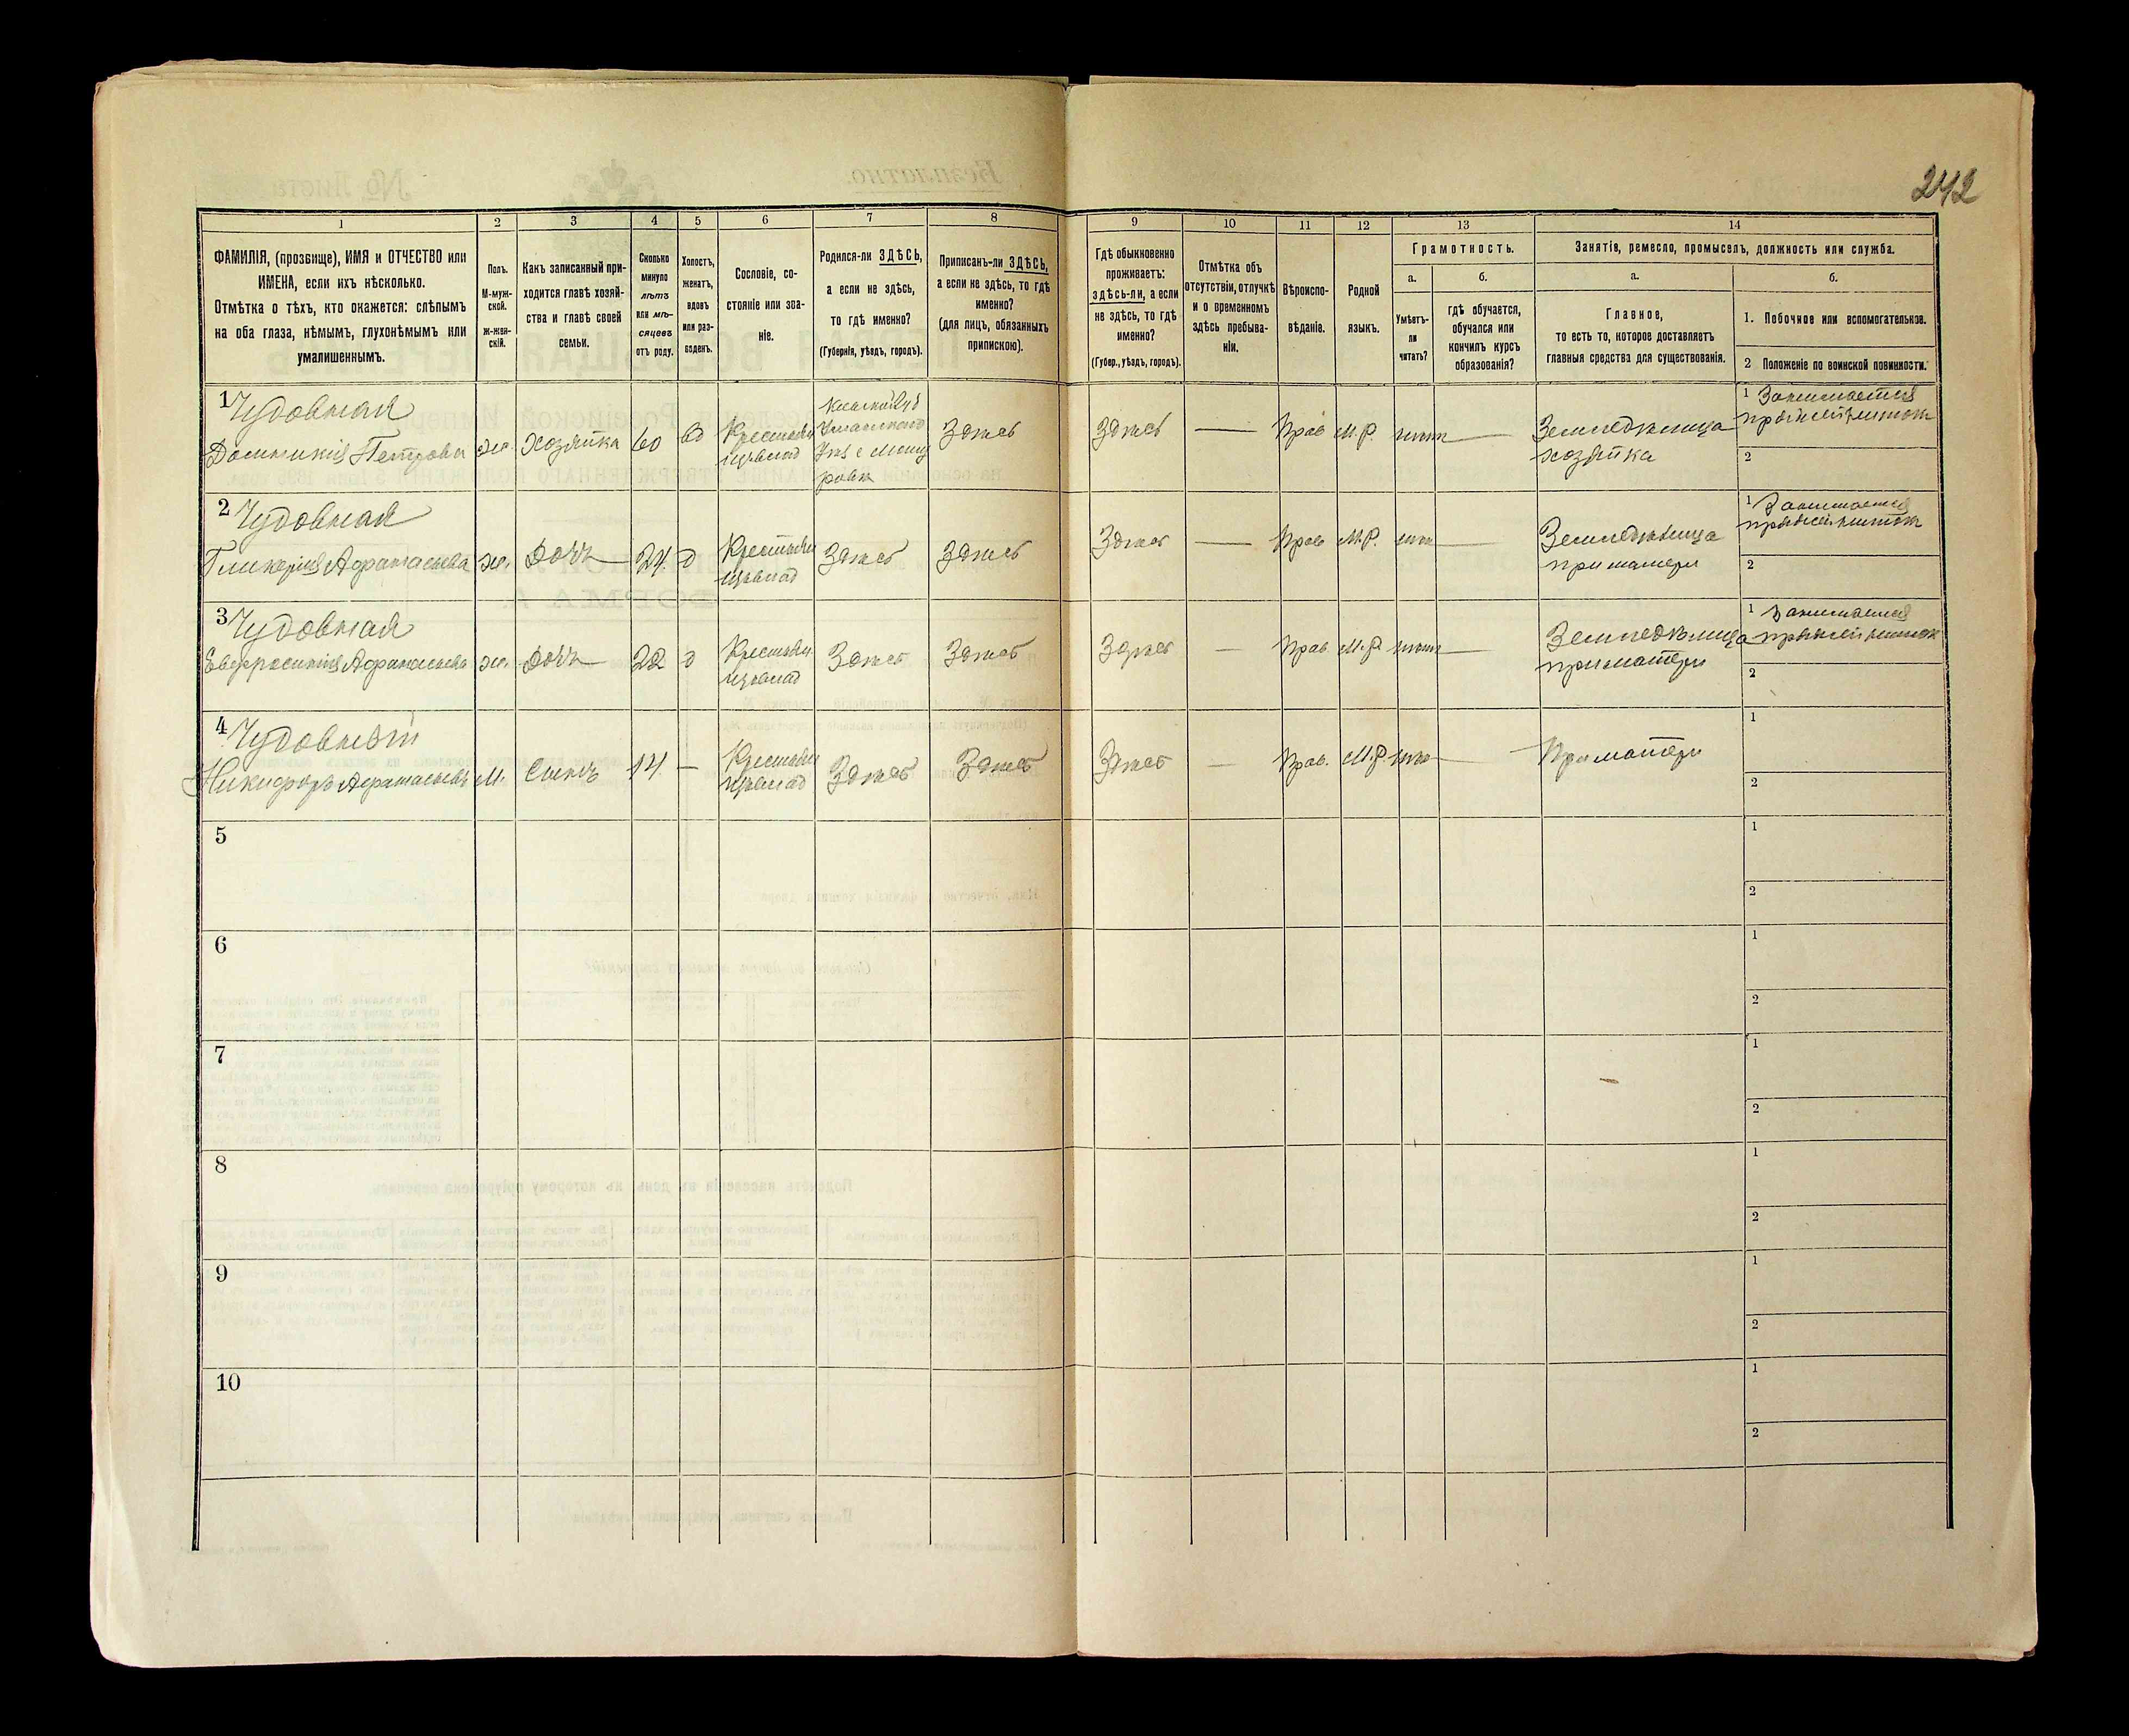 242
1
2
3
4
5
6
7
8
9
10
11
12
13
14
ФАМИЛІЯ, (прозвище), ИМЯ и ОТЧЕСТВО или
ИМЕНА, если ихъ нѣсколько.
Отмѣтка о тѣхъ, кто окажется: слѣпымъ
на оба глаза, нѣмымъ, глухонѣмымъ или
умалишеннымъ.
Полъ.
М-муж-
ской.
ж-жен-
скій.
Какъ записанный при-
ходится главѣ хозяй-
ства и главѣ своей
семьи.
Сколько
минуло
лѣтъ
или мѣ-
сяцевъ
отъ роду.
Холостъ,
женатъ,
вдовъ
или раз-
веденъ.
Сословіе, со-
стояніе или зва-
ніе.
Родился-ли ЗДѢСЬ,
а если не здѣсь,
то гдѣ именно?
(Губернія, уѣздъ, городъ).
Приписанъ-ли ЗДѢСЬ,
а если не здѣсь, то гдѣ
именно?
(для лицъ, обязанныхъ
припискою).
Гдѣ обыкновенно
проживаетъ:
здѣсь-ли, а если
не здѣсь, то гдѣ
именно?
(Губер., уѣздъ, городъ).
Отмѣтка объ
отсутствіи, отлучкѣ
и о временномъ
здѣсь пребыва-
ніи.
Вѣроиспо-
вѣданіе.
Родной
языкъ.
Грамотность.
а.
б.
Умѣетъ-
ли
читать?
гдѣ обучается,
обучался или
кончилъ курсъ
образованія?
Занятіе, ремесло, промыселъ, должность или служба.
а.
б.
Главное,
то есть то, которое доставляетъ
главныя средства для существованія.
1. Побочное или вспомогательное.
2 Положеніе по воинской повинности.
1 Чудовная
Домникія Петрова
ж.
хозяйка
60
вд
Здѣсь
Здѣсь
—
Прав
М.Р.
нѣтъ —
Земледѣлица
хозяйка
1 Занимается
2
2 Чудовная
Гликерія Афанасьева
ж.
дочь
24
д
Здѣсь
Здѣсь
Здѣсь
—
Прав
М.Р.
нѣтъ —
Земледѣлица
при матери
1 Занимается
2
3 Чудовная
Евфросинія Афанасьева
ж.
дочь
22
д
Здѣсь
Здѣсь
Здѣсь
—
Прав
М.Р.
нѣтъ —
Земледѣлица
при матери
1 Занимается
2
4 Чудовный
Никифоръ Афанасьевъ
М.
Сынъ
14
—
Здѣсь
Здѣсь
Здѣсь
—
Прав.
М.Р.
нѣтъ —
При матери
1
2
5
1
2
6
1
2
7
1
2
8
1
2
9
1
2
10
1
2